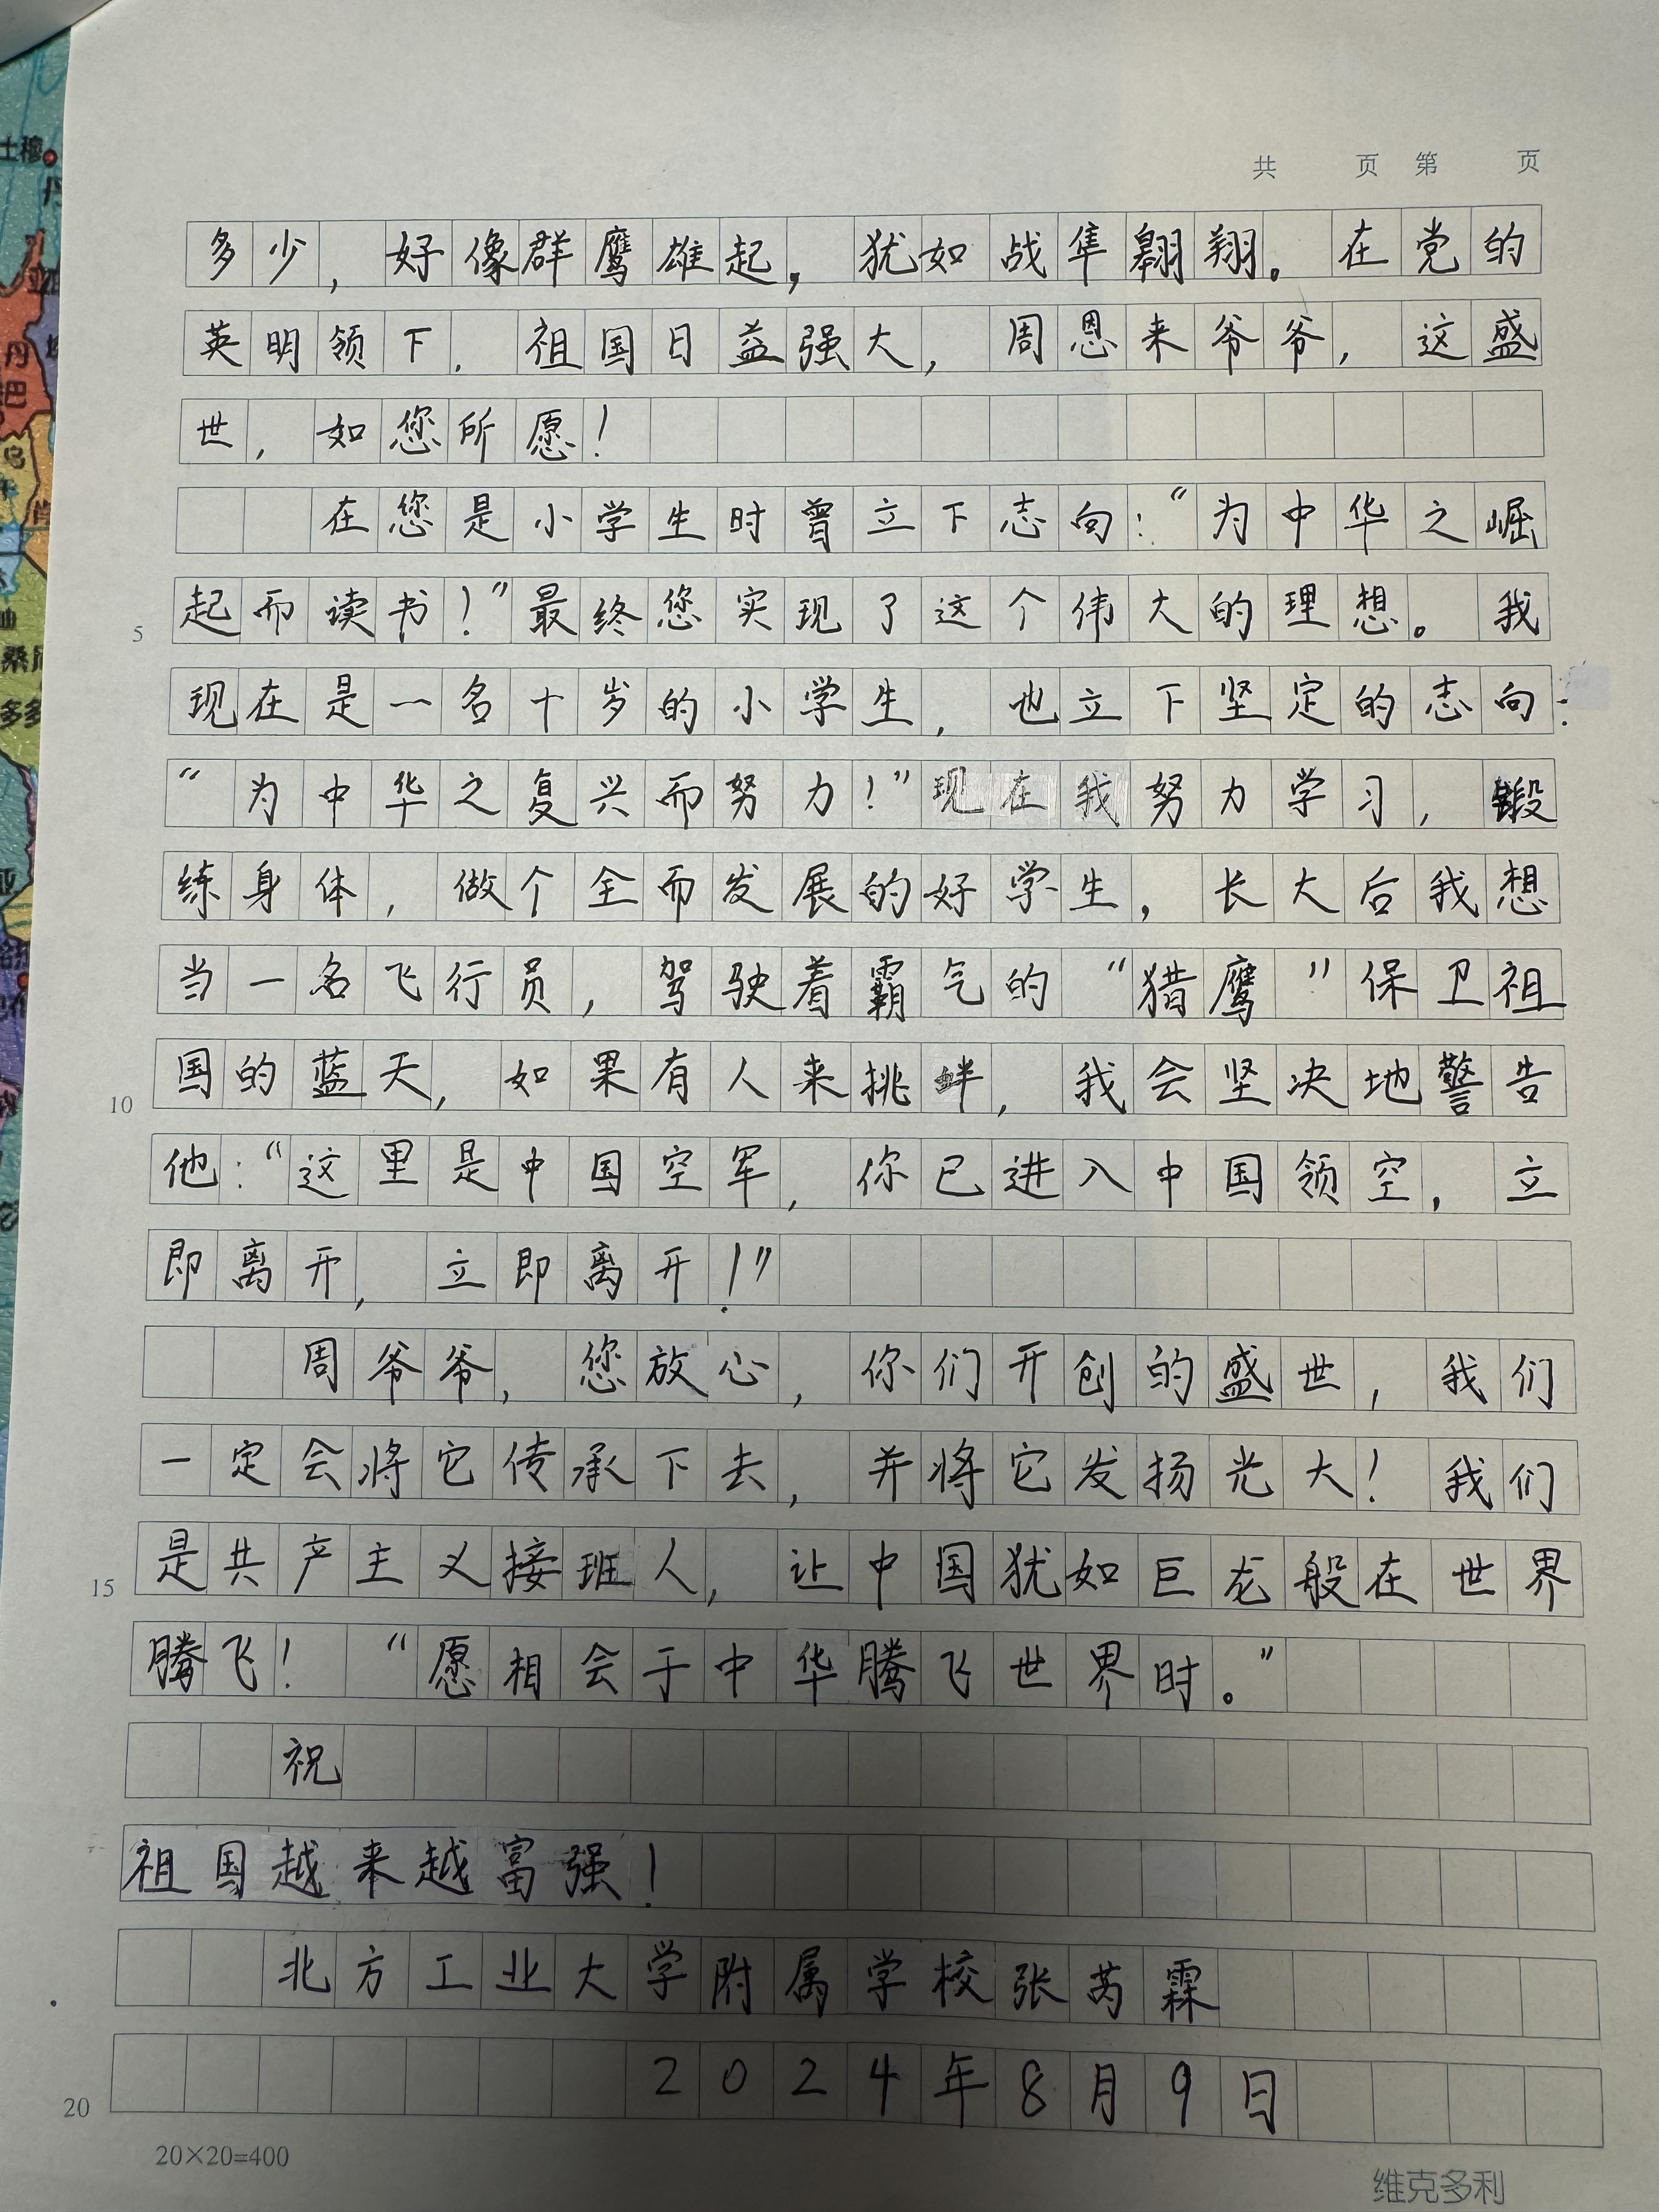 土穆
丹
共 页 第 页
多少，好像群鹰雄起，犹如战隼翱翔。在党的
英明领下，祖国日益强大，周恩来爷爷，这盛
世，如您所愿！
在您是小学生时曾立下志向：“为中华之崛
起而读书！”最终您实现了这个伟大的理想。我
5
现在是一名十岁的小学生，也立下坚定的志向：
“为中华之复兴而努力！”现在我努力学习，锻
练身体，做个全而发展的好学生，长大后我想
当一名飞行员，驾驶着霸气的“猎鹰”保卫祖
国的蓝天，如果有人来挑衅，我会坚决地警告
10
他：“这里是中国空军，你已进入中国领空，立
即离开，立即离开！”
周爷爷，您放心，你们开创的盛世，我们
一定会将它传承下去，并将它发扬光大！我们
是共产主义接班人，让中国犹如巨龙般在世界
15
腾飞！“愿相会于中华腾飞世界时。”
祝
祖国越来越富强！
北方工业大学附属学校张芮霖
2024年8月9日
20
20×20=400
维克多利